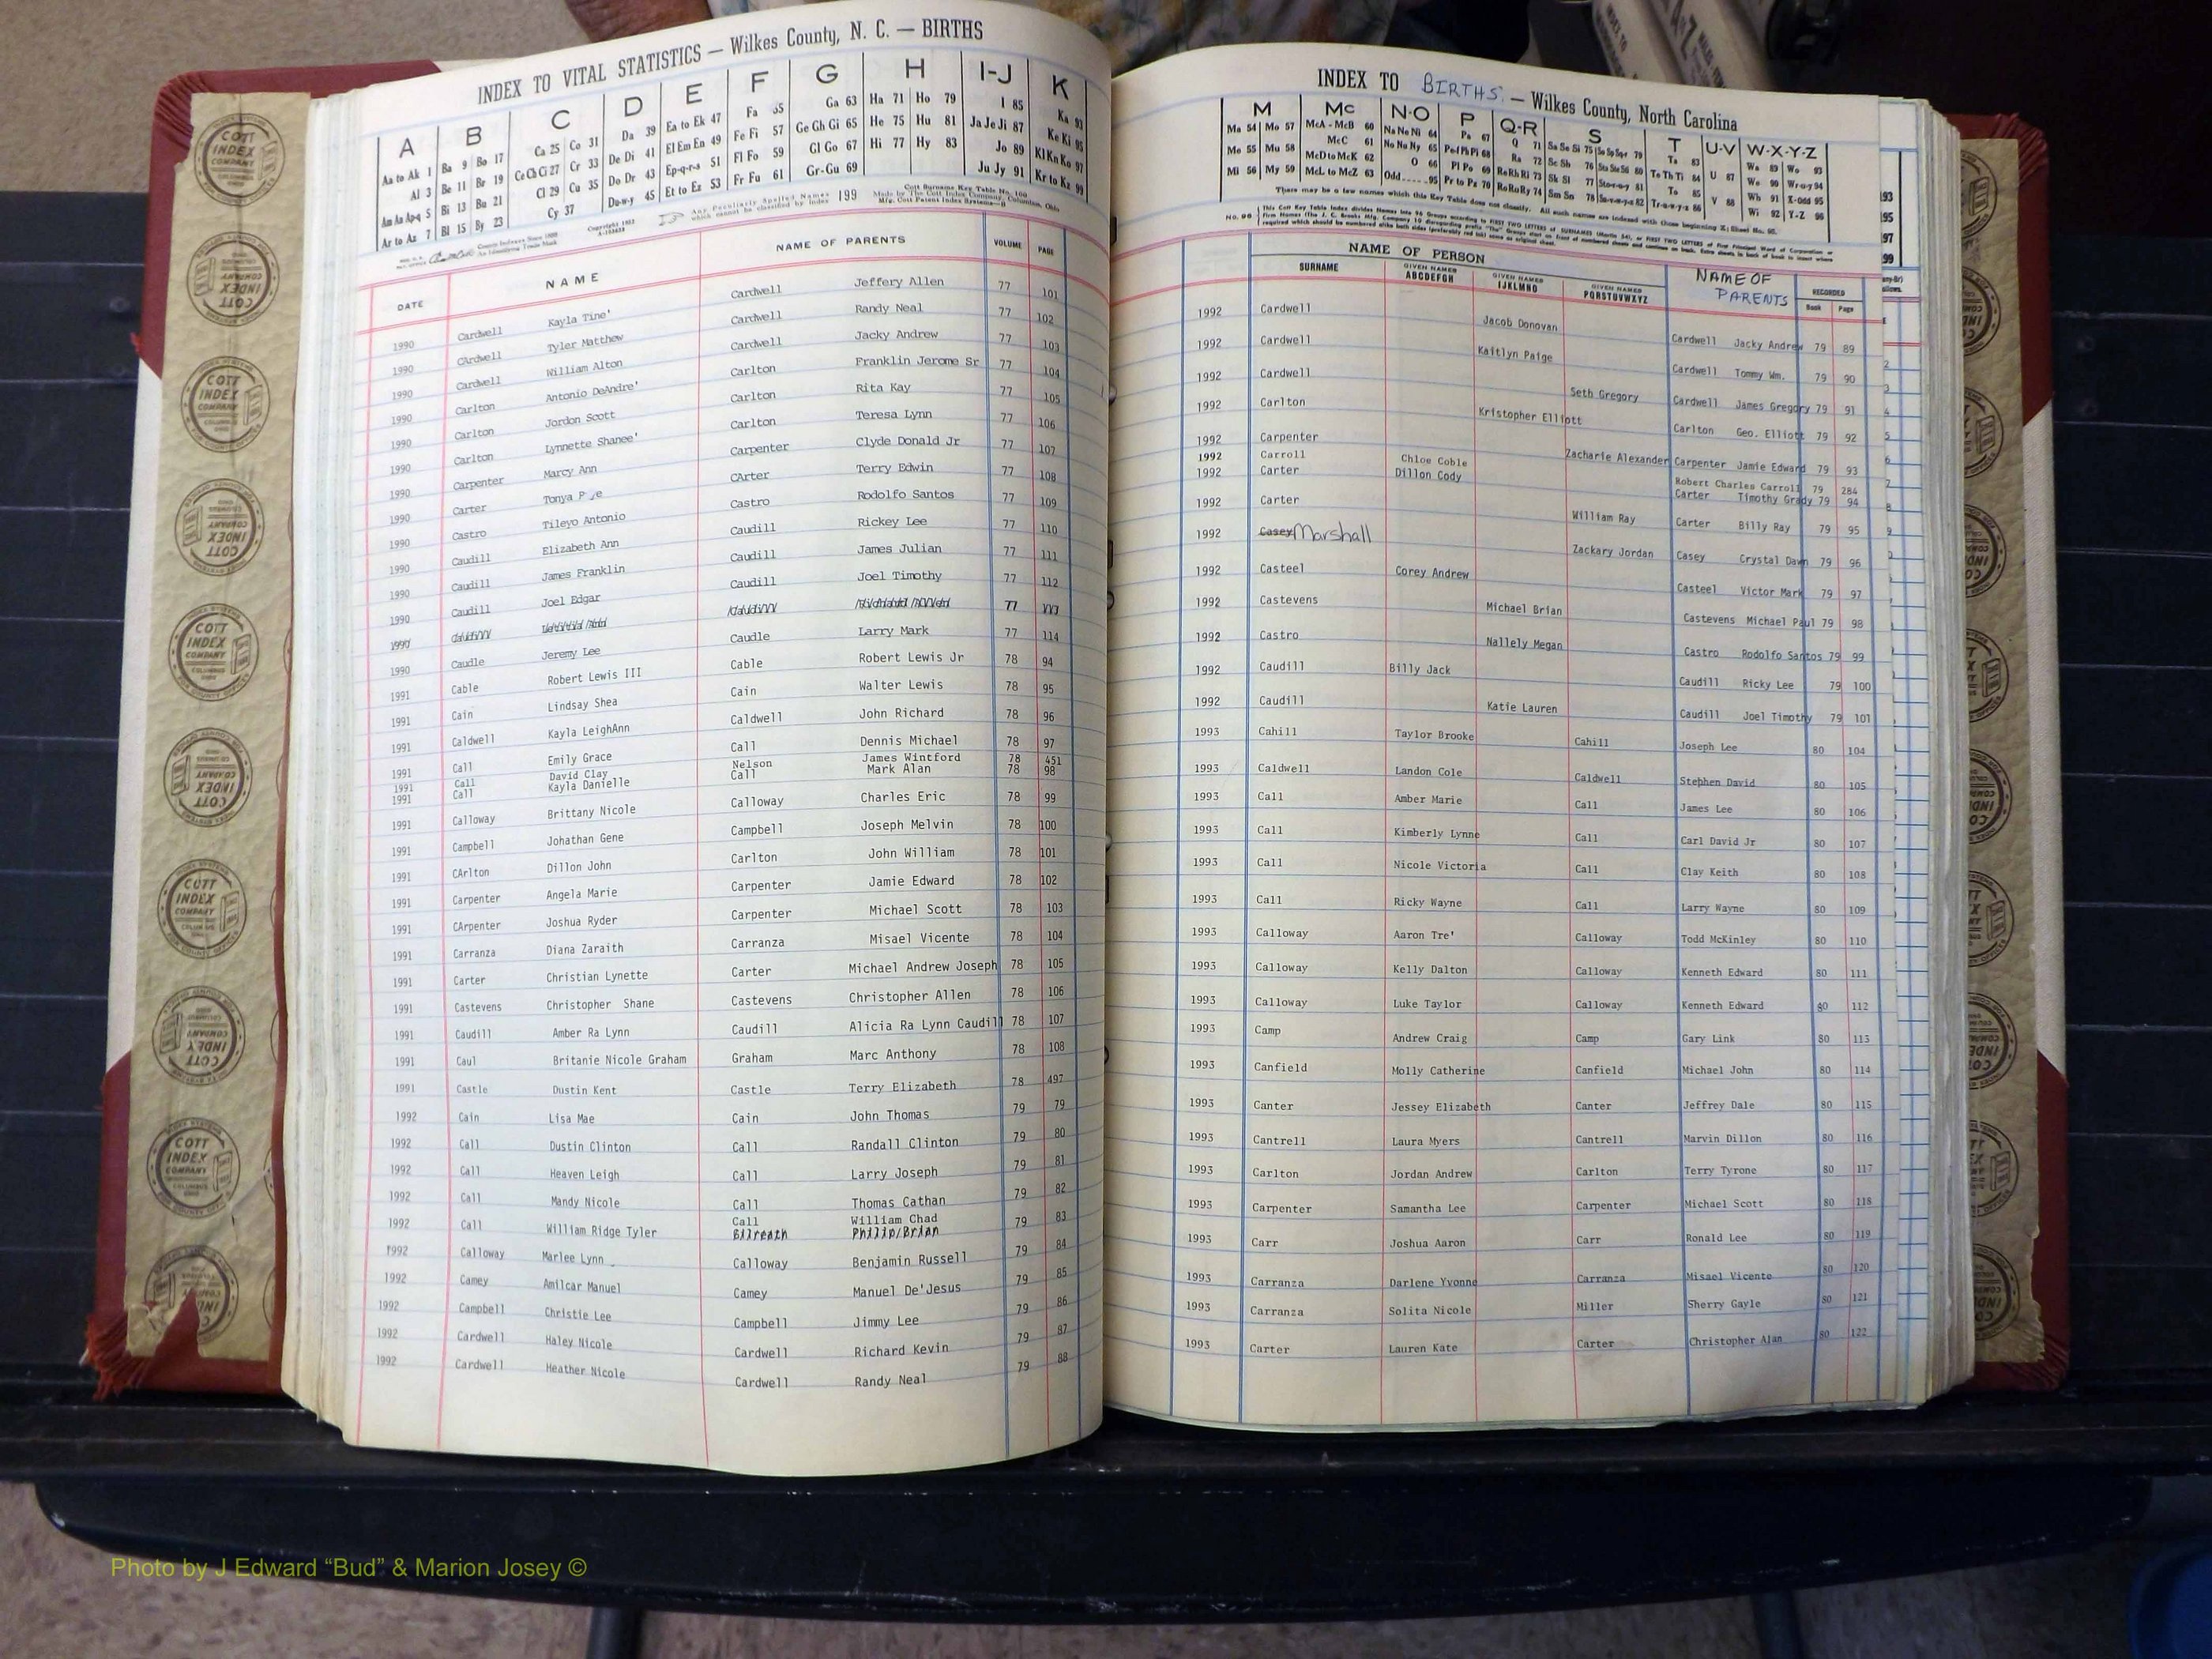 INDEX TO VITAL STATISTICS — Wilkes County, N. C. — BIRTHS
A B C D E F G H I-J K
Aa to Ak 1 Ba 9 Bo 17 Ca 25 Co 31 Da 39 Ea to Ek 47 Fa 55 Ga 63 Ha 71 Ho 79 I 85 Ka 93
Al 3 Be 11 Br 19 Ce Ch Ci 27 Cr 33 De Di 41 El Em En 49 Fe Fi 57 Ge Gh Gi 65 He 75 Hu 81 Ja Je Ji 87 Ke Ki 95
Am An Ap-q 5 Bi 13 Bu 21 Cl 29 Cu 35 Do Dr 43 Ep-q-r-s 51 Fl Fo 59 Gl Go 67 Hi 77 Hy 83 Jo 89 Kl Kn Ko 97
Ar to Az 7 Bl 15 By 23 Cy 37 Du-w-y 45 Et to Ez 53 Fr Fu 61 Gr-Gu 69 Ju Jy 91 Kr to Kz 99
Any Peculiarly Spelled Names which cannot be classified by index 199
Cott Surname Key Table No. 100
Made by The Cott Index Company, Columbus, Ohio
DATE NAME NAME OF PARENTS VOLUME PAGE
1990 Cardwell Kayla Tine' Cardwell Jeffery Allen 77 101
1990 CArdwell Tyler Matthow Cardwell Randy Neal 77 102
1990 Cardwell William Alton Cardwell Jacky Andrew 77 103
1990 Carlton Antonio DeAndre' Carlton Franklin Jerome Sr 77 104
1990 Carlton Jordon Scott Carlton Rita Kay 77 105
1990 Carlton Lynnette Shanee' Carlton Teresa Lynn 77 106
1990 Carpenter Marcy Ann Carpenter Clyde Donald Jr 77 107
1990 Carter Tonya CArter Terry Edwin 77 108
1990 Castro Tileyo Antonio Castro Rodolfo Santos 77 109
1990 Caudill Elizabeth Ann Caudill Rickey Lee 77 110
1990 Caudill James Franklin Caudill James Julian 77 111
1990 Caudill Joel Edgar Caudill Joel Timothy 77 112
1990 77
1990 Caudle Jeremy Lee Caudle Larry Mark 77 114
1991 Cable Robert Lewis III Cable Robert Lewis Jr 78 94
1991 Cain Lindsay Shea Cain Walter Lewis 78 95
1991 Caldwell Kayla LeighAnn Caldwell John Richard 78 96
1991 Call Emily Grace Call Dennis Michael 78 97
1991 Call David Clay Nelson James Wintford 78 451
1991 Call Kayla Danielle Call Mark Alan 78 98
1991 Calloway Brittany Nicole Calloway Charles Eric 78 99
1991 Campbell Johathan Gene Campbell Joseph Melvin 78 100
1991 CArlton Dillon John Carlton John William 78 101
1991 Carpenter Angela Marie Carpenter Jamie Edward 78 102
1991 CArpenter Joshua Ryder Carpenter Michael Scott 78 103
1991 Carranza Diana Zaraith Carranza Misael Vicente 78 104
1991 Carter Christian Lynette Carter Michael Andrew Joseph 78 105
1991 Castevens Christopher Shane Castevens Christopher Allen 78 106
1991 Caudill Amber Ra Lynn Caudill Alicia Ra Lynn Caudill 78 107
1991 Caul Britanie Nicole Graham Graham Marc Anthony 78 108
1991 Castle Dustin Kent Castle Terry Elizabeth 78 497
1992 Cain Lisa Mae Cain John Thomas 79 79
1992 Call Dustin Clinton Call Randall Clinton 79 80
1992 Call Heaven Leigh Call Larry Joseph 79 81
1992 Call Mandy Nicole Call Thomas Cathan 79 82
1992 Call William Ridge Tyler Call William Chad 79 83
Gilreath Philip/Brian
1992 Calloway Marlee Lynn Calloway Benjamin Russell 79 84
1992 Camey Amilcar Manuel Camey Manuel De'Jesus 79 85
1992 Campbell Christie Lee Campbell Jimmy Lee 79 86
1992 Cardwell Haley Nicole Cardwell Richard Kevin 79 87
1992 Cardwell Heather Nicole Cardwell Randy Neal 79 88
INDEX TO BIRTHS. — Wilkes County, North Carolina
M Mc N-O P Q-R S T U-V W-X-Y-Z
Ma 54 Mo 57 McA - McB 60 Na Ne Ni 64 Pa 67 Q 71 Sa Se Si 75 Ta 83 Wa 89 Wo 93
Me 55 Mu 58 McC 61 No Nu Ny 65 Pe Pi 68 Ra 72 Sc Sh 76 Te Th Ti 84 U 87 We 90 Wr-u-y 94
Mi 56 My 59 McD to McK 62 O 66 Pl Po 69 Re Rh Ri 73 Sk Sl 77 To 85 Wh 91 X-Odd 95
McL to McZ 63 Odd 95 Pr to Ps 70 Ro Ru Ry 74 Sm Sn 78 Tr-u-w-y-z 86 V 88 Wi 92 Y-Z 96
NAME OF PERSON
SURNAME GIVEN NAMES ABCDEFGH GIVEN NAMES IJKLMNO GIVEN NAMES PQRSTUVWXYZ NAME OF PARENTS RECORDED Book Page
1992 Cardwell Jacob Donovan Cardwell Jacky Andrew 79 89
1992 Cardwell Kaitlyn Paige Cardwell Tommy Wm. 79 90
1992 Cardwell Seth Gregory Cardwell James Gregory 79 91
1992 Carlton Kristopher Elliott Carlton Geo. Elliott 79 92
1992 Carpenter Zacharie Alexander Carpenter Jamie Edward 79 93
1992 Carroll Chloe Coble Robert Charles Carroll 79 284
1992 Carter Dillon Cody Carter Timothy Grady 79 94
1992 Carter William Ray Carter Billy Ray 79 95
1992 Casey Marshall Zackary Jordan Casey Crystal Dawn 79 96
1992 Casteel Corey Andrew Casteel Victor Mark 79 97
1992 Castevens Michael Brian Castevens Michael Paul 79 98
1992 Castro Nallely Megan Castro Rodolfo Santos 79 99
1992 Caudill Billy Jack Caudill Ricky Lee 79 100
1992 Caudill Katie Lauren Caudill Joel Timothy 79 101
1993 Cahill Taylor Brooke Cahill Joseph Lee 80 104
1993 Caldwell Landon Cole Caldwell Stephen David 80 105
1993 Call Amber Marie Call James Lee 80 106
1993 Call Kimberly Lynne Call Carl David Jr 80 107
1993 Call Nicole Victoria Call Clay Keith 80 108
1993 Call Ricky Wayne Call Larry Wayne 80 109
1993 Calloway Aaron Tre' Calloway Todd McKinley 80 110
1993 Calloway Kelly Dalton Calloway Kenneth Edward 80 111
1993 Calloway Luke Taylor Calloway Kenneth Edward 112
1993 Camp Andrew Craig Camp Gary Link 80 113
1993 Canfield Molly Catherine Canfield Michael John 80 114
1993 Canter Jessey Elizabeth Canter Jeffrey Dale 80 115
1993 Cantrell Laura Myers Cantrell Marvin Dillon 80 116
1993 Carlton Jordan Andrew Carlton Terry Tyrone 80 117
1993 Carpenter Samantha Lee Carpenter Michael Scott 80 118
1993 Carr Joshua Aaron Carr Ronald Lee 80 119
1993 Carranza Darlene Yvonne Carranza Misael Vicente 80 120
1993 Carranza Solita Nicole Miller Sherry Gayle 80 121
1993 Carter Lauren Kate Carter Christopher Alan 80 122
Photo by J Edward “Bud” & Marion Josey ©